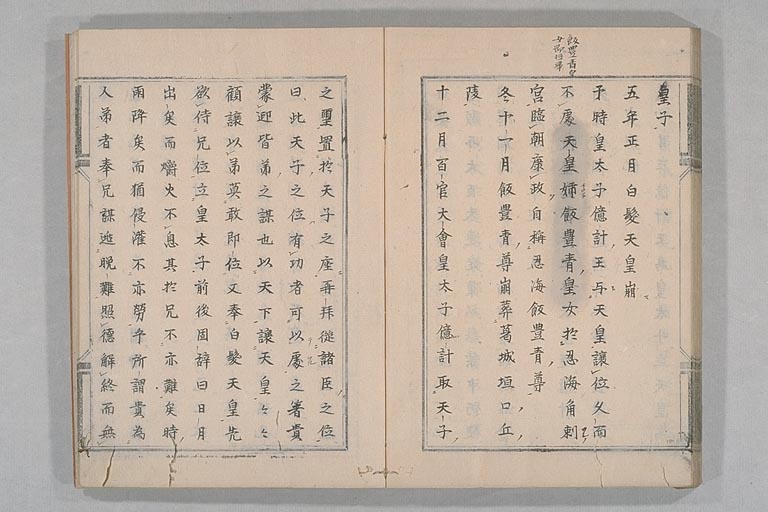 皇子
五年正月白髮天皇崩
于時皇太子億計王与天皇讓位久而
不處天皇姉飯豐青皇女於忍海角刺
宮臨朝秉政自稱忍海飯豐青尊
冬十一月飯豐青尊崩葬葛城垣口丘
陵
十二月百官大會皇太子億計取天子
之璽置於天子之座再拜從諸臣之位
曰此天子之位有功者可以處之著貴
蒙迎皆弟之謀也以天下讓天皇々々
顧讓以弟莫敢即位又奉白髮天皇先
欲侍兄位立皇太子前後固辞曰日月
出矣而爝火不息其於兄不亦難矣時
雨降矣而猶侵灌不亦勞乎所謂貴為
人弟者奉兄謀逃脫難照德解終而無